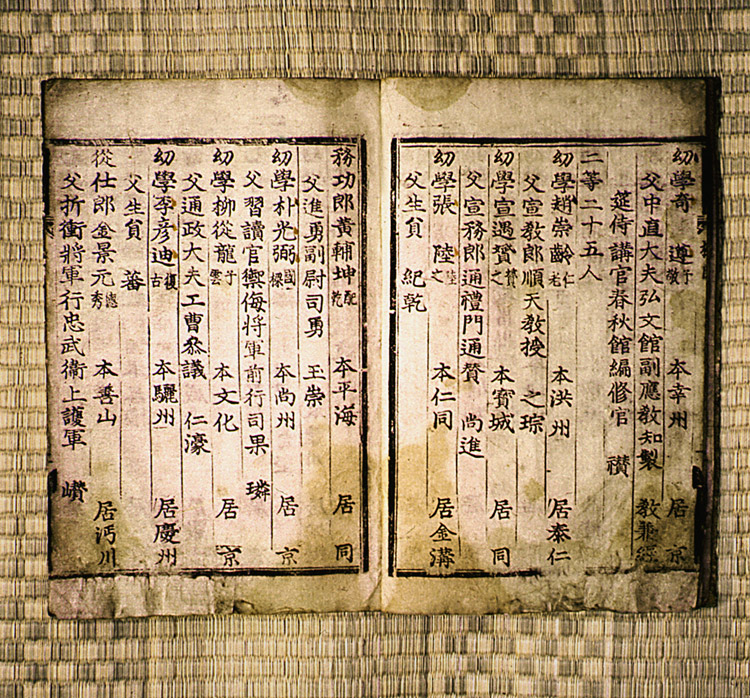 幼學奇 遵 子敬 本幸州 居京
父中直大夫弘文館副應教知製 教兼經
筵侍講官春秋館編修官 禶
二等二十五人
幼學趙崇齡 仁老 本洪州 居泰仁
父宣教郎順天教授 之琮
幼學宣遇贇 贊之 本寶城 居同
父宣務郎通禮門通贊 尚進
幼學張 陸 陸之 本仁同 居金溝
父生員 紀乾
務功郎黃輔坤 配乾 本平海 居同
父進勇副尉司勇 王崇
幼學朴光弼 國 本尚州 居京
父習讀官禦侮將軍前行司果 璘
幼學柳從龍 子雲 本文化 居京
父通政大夫工曹叅議 仁濠
幼學李彥迪 復古 本驪州 居慶州
父生員 蕃
從仕郎金景元 德秀 本善山 居沔川
父折衝將軍行忠武衛上護軍 巑